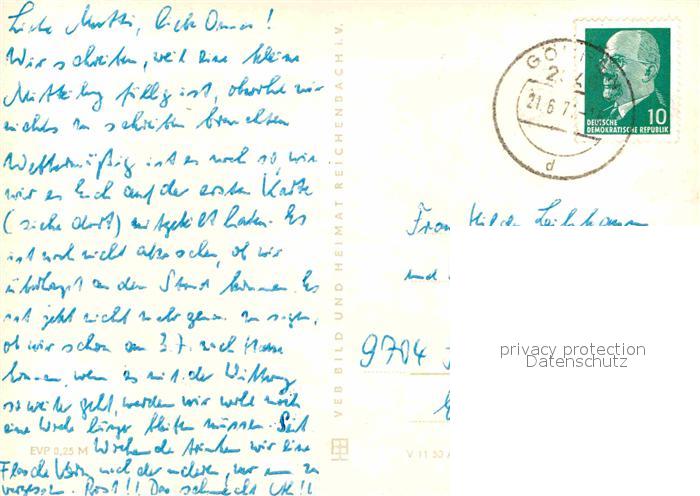 Liebe Mutti, liebe Omas!
Wir schreiben, weil eine kleine
Mitteilung fällig ist, obwohl wir
nichts zu schreiben brauchten
Wettermäßig ist es noch so, wie
wir es Euch auf der ersten Karte
(siehe dort) mitgeteilt haben. Es
ist noch nicht abzusehen, ob wir
überhaupt an den Strand können. Es
ist jetzt nicht mehr genau zu sagen,
ob wir schon am 3.7. nach Hause
kommen, wenn es mit der Witterung
so weiter geht, werden wir wohl noch
eine Woche länger bleiben müssen. Seit
Wochenende trinken wir eine
Flasche nach der anderen, nur um zu
vergessen. Prost!! Das schmeckt !!
EVP 0,25 M
VEB BILD UND HEIMAT REICHENBACH i. V.
V 11 50
21.6.7
d
10
DEUTSCHE
DEMOKRATISCHE REPUBLIK
Frau Hilde
und
9704
privacy protection
Datenschutz